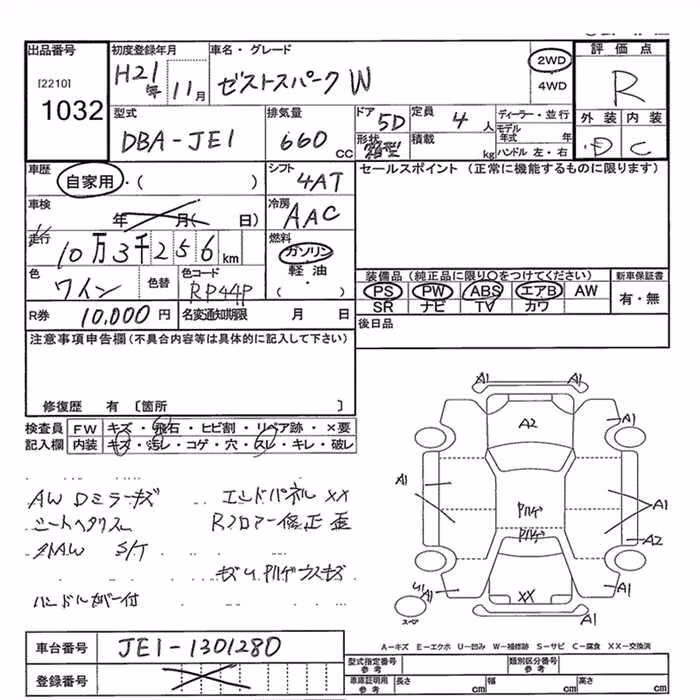 出品番号 初度登録年月 車名・グレード 評価点
[2210] H21年 11月 ゼストスパーク W 2WD R
1032 4WD
型式 排気量 ドア 定員 ディーラー・並行 外装 内装
DBA-JE1 660CC 5D 4人 モデル年式 年 D C
形状 箱型 積載 kg ハンドル 左・右
車歴 自家用・( ) シフト 4AT セールスポイント (正常に機能するものに限ります)
車検 年 月( 日) 冷房 AAC
走行 10万3千256km 燃料 ガソリン
軽油
( )
色 ワイン 色替 色コード RP44P 装備品 (純正品に限り○をつけてください) 新車保証書
PS PW ABS エアB AW 有・無
SR ナビ TV カワ
R券 10,000円 名変通知期限 月 日 後日品
注意事項申告欄 (不具合内容等は具体的に記入して下さい)
修復歴 有 〔箇所 〕
検査員 FW キズ・飛石・ヒビ割・リペア跡・×要
記入欄 内装 キズ・汚レ・コゲ・穴・スレ・キレ・破レ
AW Dミラーキズ エンドパネルXX
シートヘタリスレ Rフロアー修正歪
社外AW S/T
キズU
ハンドルカバー付
A1 A1
A1
A2
A1 A1
A2
A1 A1
XX
スペア
A1 A1
A-キズ E-エクボ U-凹み W-補修跡 S-サビ C-腐食 XX-交換済
車台番号 JE1-1301280
登録番号
型式指定番号 参考 類別区分番号 参考
車庫証明用 参考 長さ cm 幅 cm 高さ cm